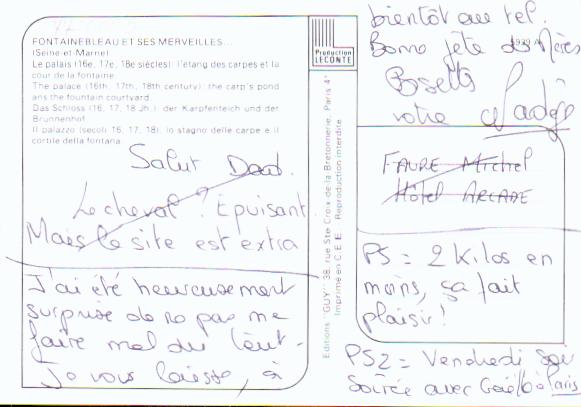 FONTAINEBLEAU ET SES MERVEILLES...
(Seine-et-Marne)
Le palais (16e, 17e, 18e siècles): l'étang des carpes et la
cour de la fontaine.
The palace (16th, 17th, 18th century): the carp's pond
ans the fountain courtyard.
Das Schloss (16, 17, 18 Jh.): der Karpfenteich und der
Brunnenhof
Il palazzo (secoli 16, 17, 18), lo stagno delle carpe e il
cortile della fontana.
Salut
Le cheval ? Epuisant.
Mais le site est extra
J'ai été heureusement
surprise de ne pas me
faire mal du
Je vous laisse, à
Production
LECONTE
Editions "GUY" 38, rue Ste Croix de la Bretonnerie, Paris 4e
Imprimé en C.E.E. Reproduction interdite
bientôt au tel.
Bonne fête des Mères
Bisettes
votre Nadège
FAURE Michel
Hôtel ARCADE
PS = 2 Kilos en
moins, ça fait
plaisir!
PS2 = Vendredi soir
Soirée avec Gaël à Paris